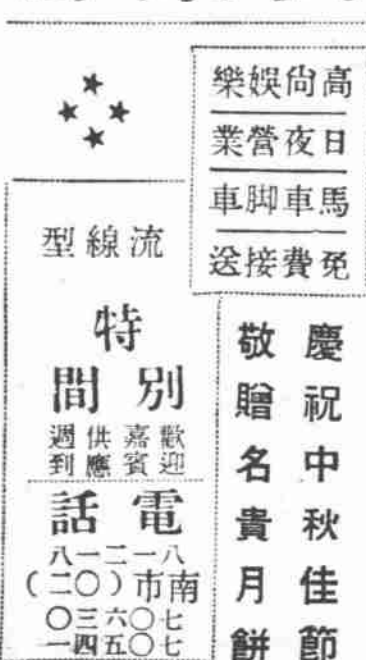 高尚娛樂
日夜營業
馬車脚車
免費接送
慶祝中秋佳節
敬贈名貴月餅
流線型
特
別間
歡迎嘉賓供應週到
電話
八一二一八
南市(〇二)
七〇六三〇
七〇五四一